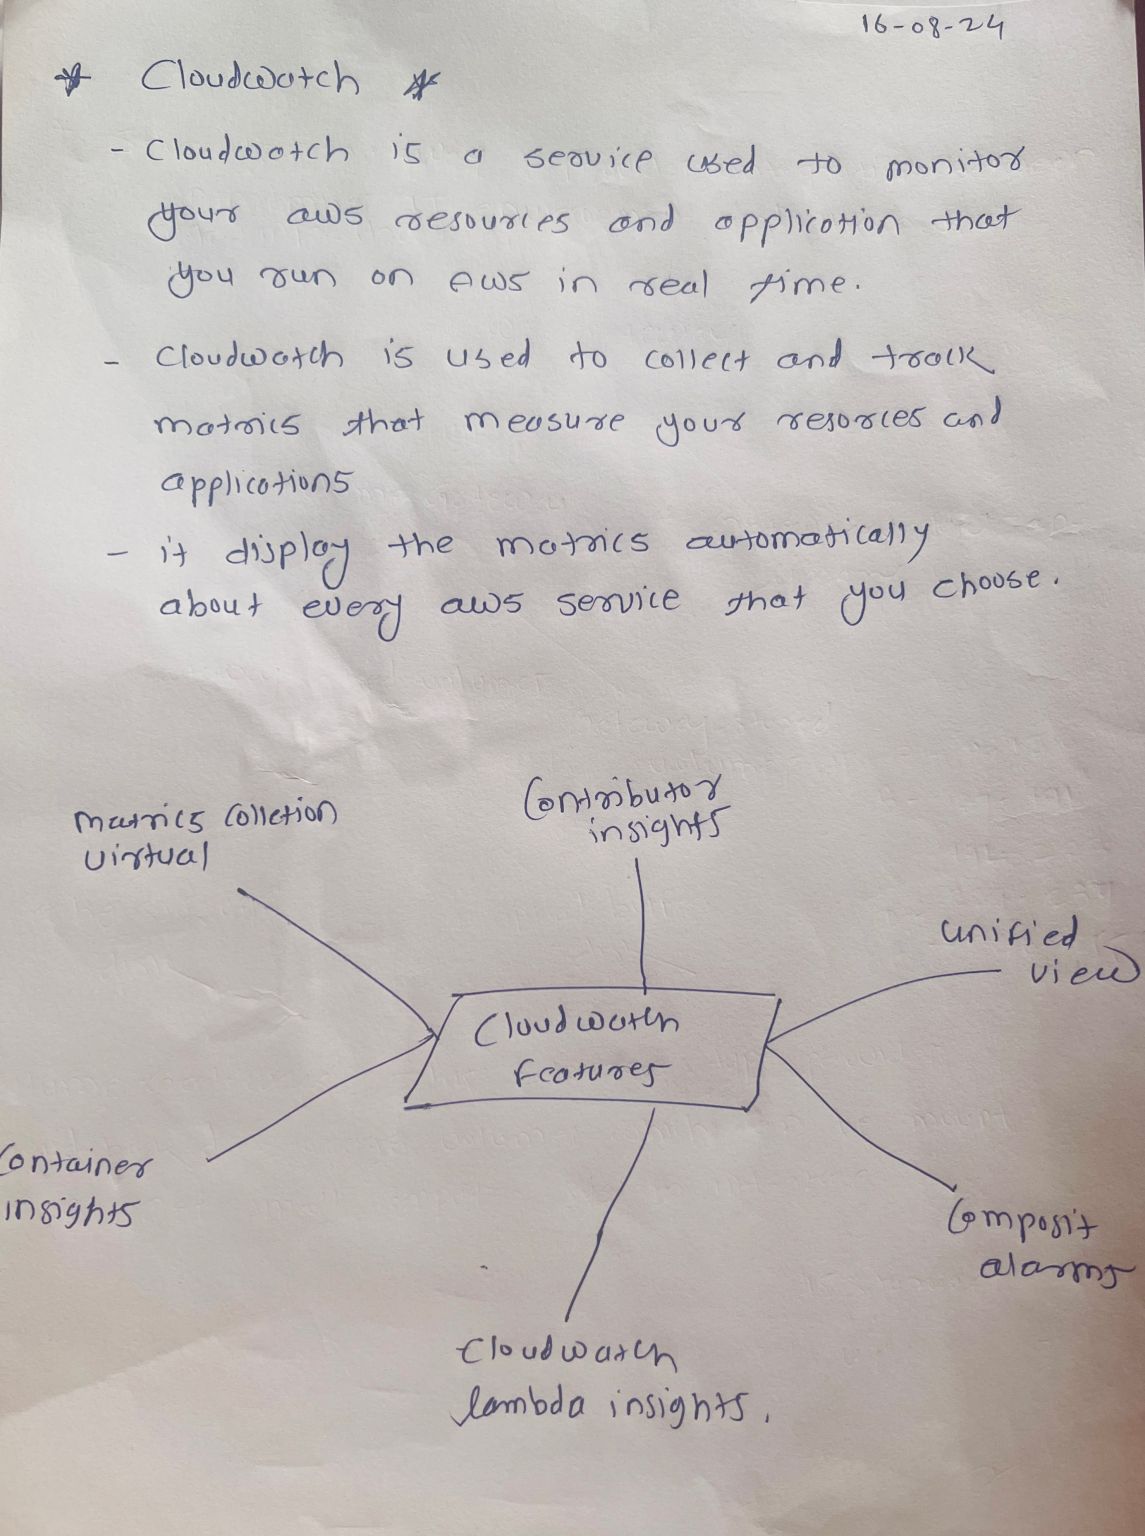 16-08-24
* Cloudwatch *
- Cloudwatch is a service used to monitor
your aws resources and application that
you run on AWS in real time.
- Cloudwatch is used to collect and track
matrics that measure your resorces and
applications
- it display the matrics automatically
about every aws service that you choose.
Contributor
insights
matrics Colletion
virtual
unified
view
Cloudwatch
features
Container
insights
Composit
alarms
Cloudwatch
lambda insights.